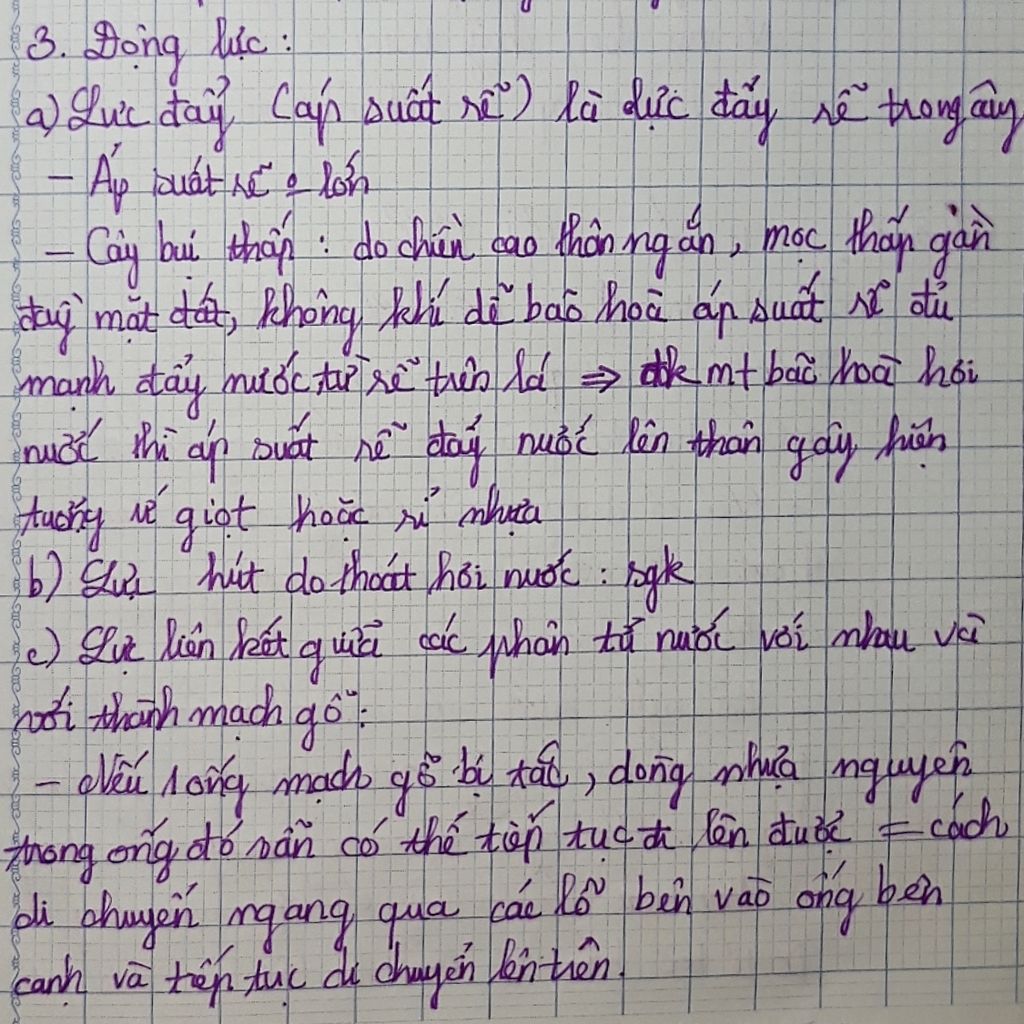 3. Động lực:
a) Lực đẩy (áp suất rễ) là lực đẩy rễ trong cây
- Áp suất rễ lớn
- Cây bụi thấp: do chiều cao thân ngắn, mọc thấp gần
mặt đất, không khí dễ bão hoà áp suất rễ đủ
mạnh đẩy nước từ rễ trên lá ⇒ đk mt bão hoà hơi
nước thì áp suất rễ đẩy nước lên thân gây hiện
tượng ứ giọt hoặc rỉ nhựa
b) Lực hút do thoát hơi nước: sgk
c) Lực liên kết giữa các phân tử nước với nhau và
với thành mạch gỗ:
- Nếu 1 ống mạch gỗ bị tắc, dòng nhựa nguyên
trong ống đó vẫn có thể tiếp tục đi lên được = cách
di chuyển ngang qua các lỗ bên vào ống bên
cạnh và tiếp tục di chuyển lên trên.